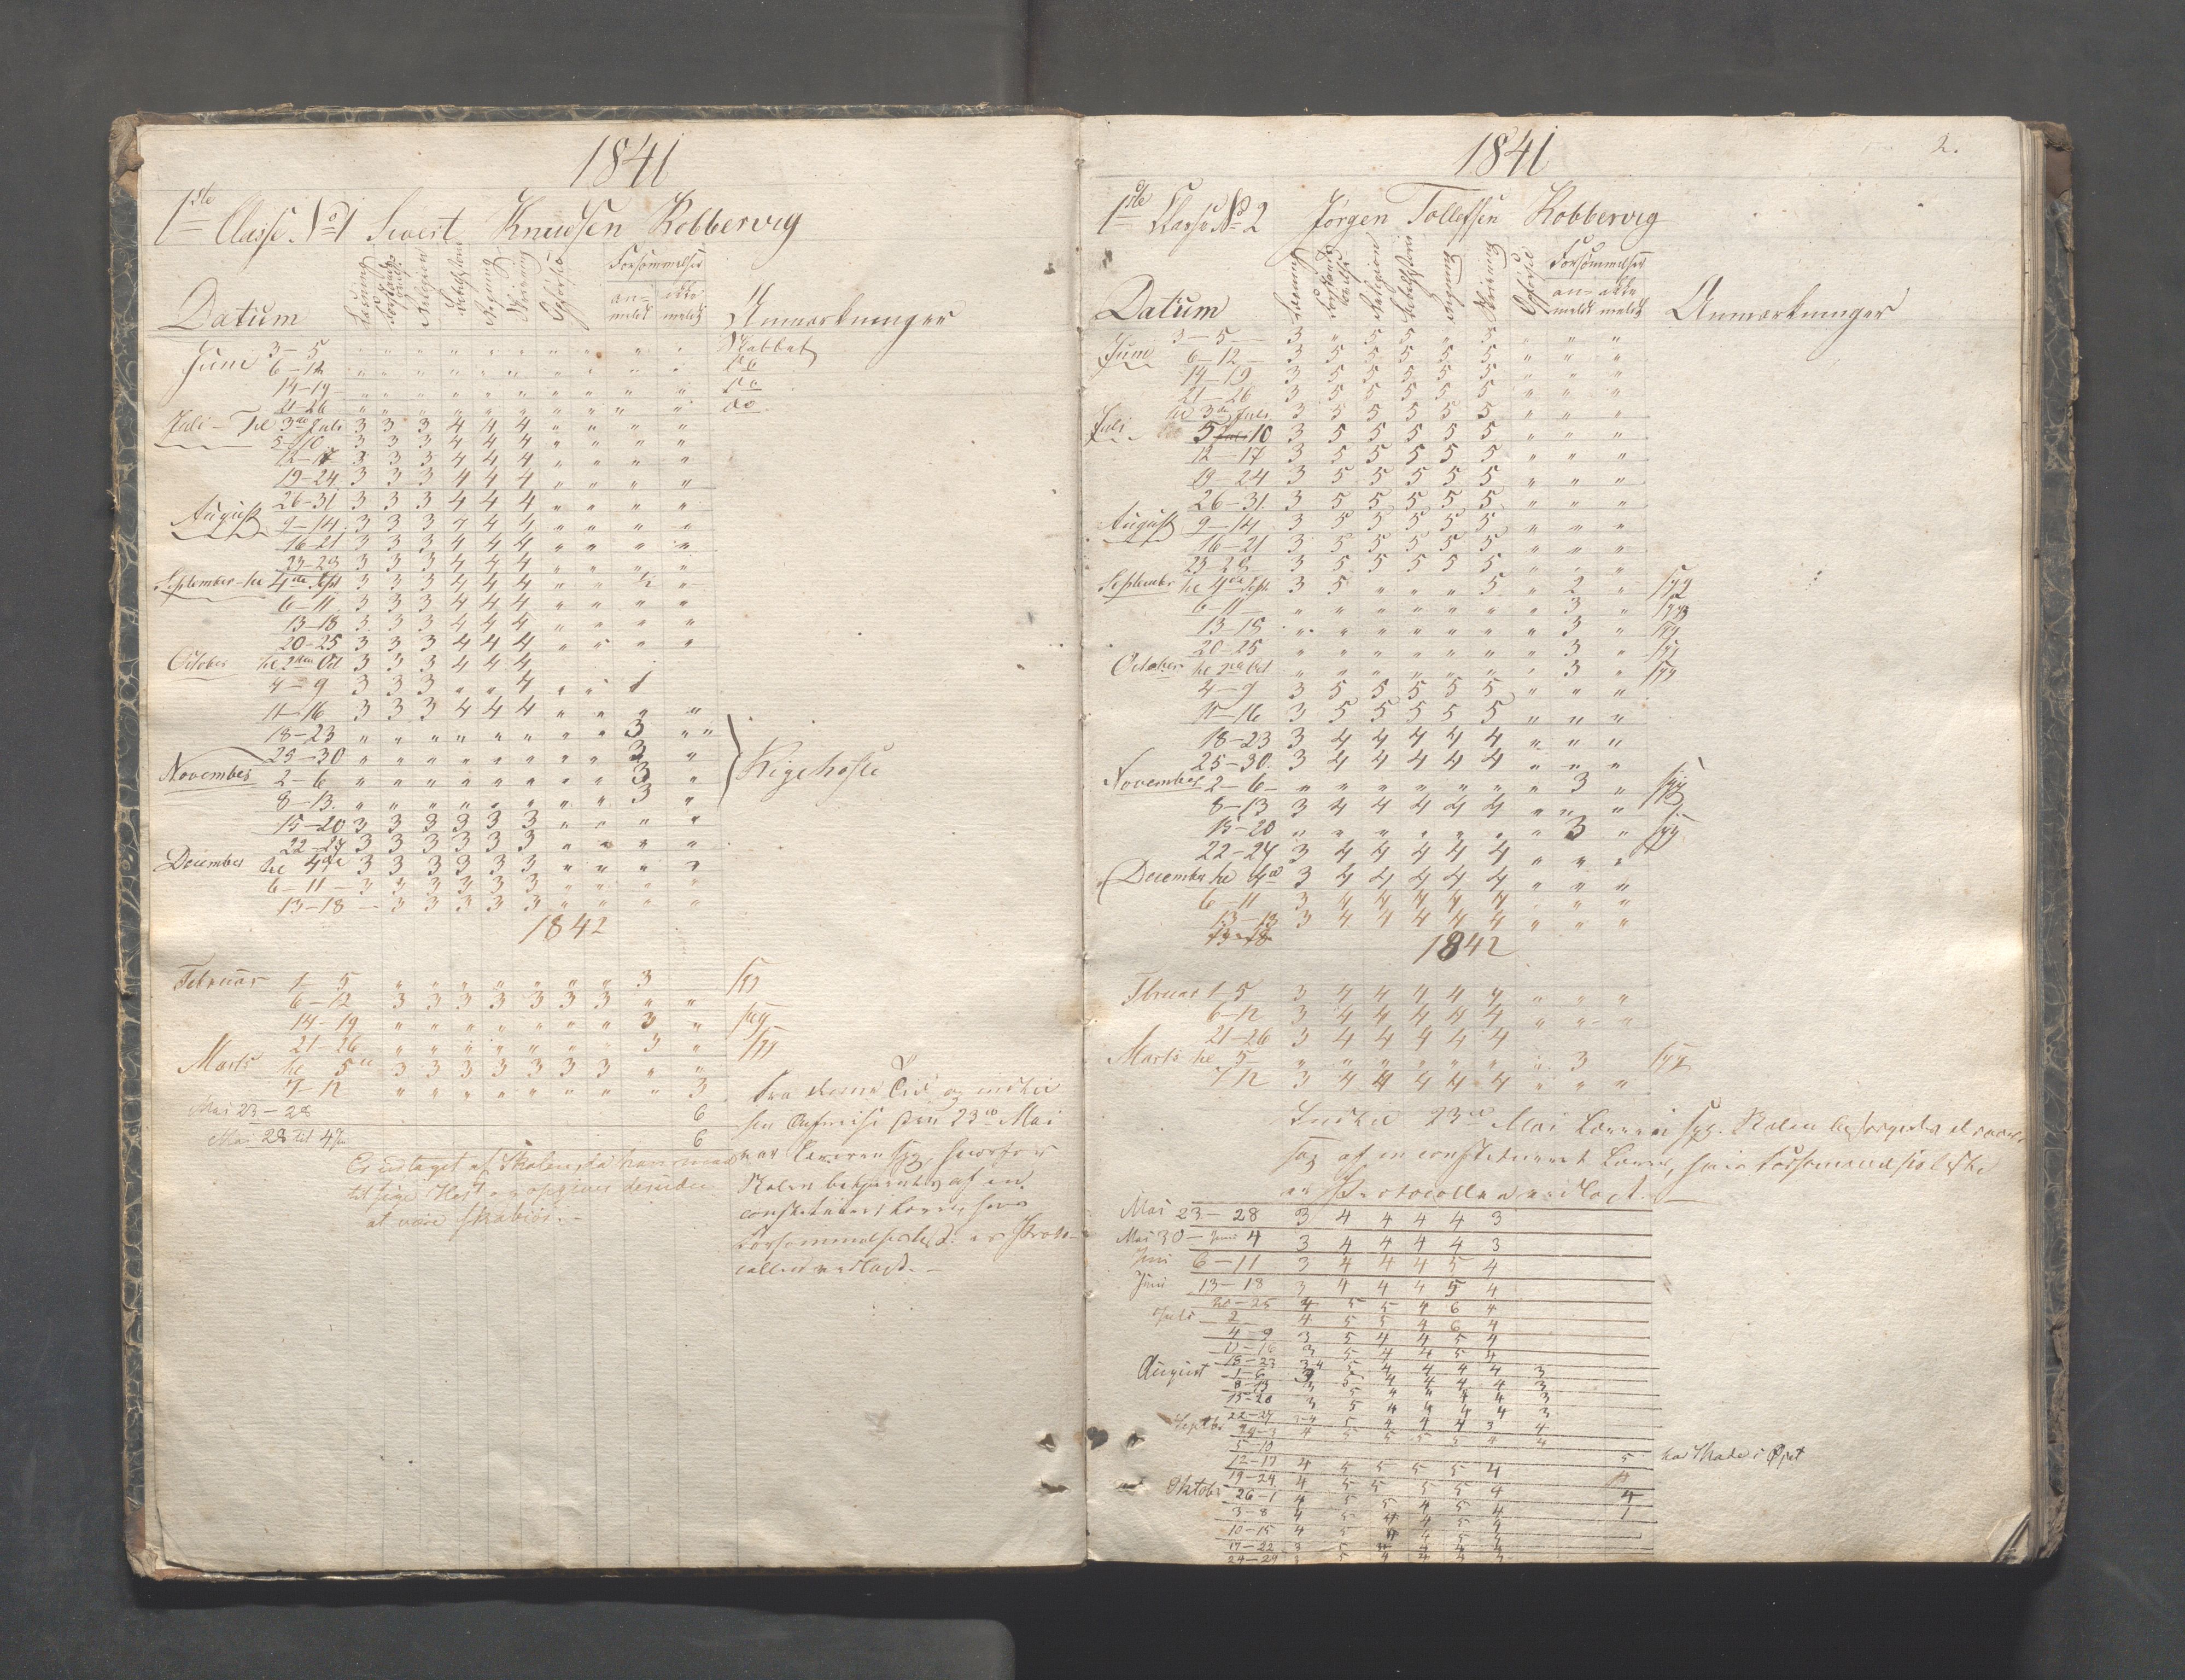 1841
1ste Classe No 1 Sivert Knudsen Robbervig
Datum Læsning Religion Regning Skrivning Opførsel Forsømmelser an= meldt ikke meldt Anmærkninger
Juni 3-5 " " " " " " " " " "
6-12 " " " " " " " " " " do
14-19 " " " " " " " " " " do
21-26 " " " " " " " " " " do
Juli - Til 3die Juli 3 3 3 4 4 4 " " " "
5-10 3 3 3 4 4 4 " " " "
12-17 3 3 3 4 4 4 " " " "
19-24 3 3 3 4 4 4 " " " "
26-31 3 3 3 4 4 4 " " " "
August 9-14 3 3 3 4 4 4 " " " "
16-21 3 3 3 4 4 4 " " " "
23-28 3 3 3 4 4 4 " " " "
September til 4de Sept 3 3 3 4 4 4 " " ½ "
6-11 3 3 3 4 4 4 " " " "
13-18 3 3 3 4 4 4 " " " "
20-25 3 3 3 4 4 4 " " " "
October til 2den Oct 3 3 3 4 4 4
4-9 3 3 3 " " 4 " " 1
11-16 3 3 3 4 4 4 " " " "
18-23 " " " " " " " " 3 " "
25-30 " " " " " " " " 3 "
November 2-6 " " " " " " " " 3 " Kigehoste
8-13 " " " " " " " " 3 "
15-20 3 3 3 3 3 3 " " " "
22-27 3 3 3 3 3 3 " " " "
December til 4de 3 3 3 3 3 3 " " " "
6-11 3 3 3 3 3 3 " " " "
13-18 3 3 3 3 3 3 " " " "
1842
Februar 1 5 " " " " " " " " 3 syg
6-12 3 3 3 3 3 3 3 " "
14-19 " " " " " " " " 3 " syg
21-26 " " " " " " " " 3 " syg
Marts til 5te 3 3 3 3 3 3 3 " "
7-12 " " " " " " " " " 3
Mai 23-28 6
Mai 28 til 4 Ju 6
Fra denne Tid og indtil
den 23de Mai
var Læreren syg, hvorfor
Skolen betjentes af en
constitueret Lærer, hvis
Forsømmelsesliste er Proto-
collen vedlagt.-
Er udtaget af Skolen, da han
at være skabiøs.-
1841 2.
1ste Klasse No 2 Jørgen Tollefsen Robbervig
Datum Læsning Religion Regning Skrivning Opførsel Forsømmelser an= meldt ikke meldt Anmærkninger
Juni 3-5 3 " 5 5 " 5 " " "
6-12 3 5 5 5 5 5 " " "
14-19 3 5 5 5 5 5 " " "
21-26 3 5 5 5 5 5 " " "
Juli til 3die Juli 3 5 5 5 5 5 " " "
5 Juli 10 3 5 5 5 5 5 " " "
12-17 3 5 5 5 5 5 " " "
19-24 3 5 5 5 5 5 " " "
26-31 3 5 5 5 5 5 " " "
August 9-14 3 5 5 5 5 5 " " "
16-21 3 5 5 5 5 5 " " "
23-28 3 5 5 5 5 5 " " "
September til 4de Sept. 3 5 " " " 5 " 2 " syg
6-11 " " " " " " " 3 " syg
13-18 " " " " " " " 3 " syg
20-25 " " " " " " " 3 " syg
October til 2den Oct " " " " " " " 3 " syg
4-9 3 5 5 5 5 5 " " "
11-16 3 5 5 5 5 5 " " "
18-23 3 4 4 4 4 4 " " "
25-30 3 4 4 4 4 4 " " "
November 2-6 " " " " " " " 3 " syg
8-13 3 4 4 4 4 4 " " "
15-20 " " " " " " " 3 " syg
22-27 3 4 4 4 4 4 " " "
December til 4de 3 4 4 4 4 4 " " "
6-11 3 4 4 4 4 4 " " "
13-18 3 4 4 4 4 4 " " "
13-18
1842
Februar 1-5 3 4 4 4 4 4 " " "
6-12 3 4 4 4 4 4 " " "
21-26 3 4 4 4 4 4
Marts til 5 " " " " " " " 3 syg
7-12 3 4 4 4 4 4 " " "
Indtil 23de Mai Læreren syg. Skolen
af en constitueret Lærer, hvis Forsømmelsesliste
er Protocollen vedlagt.
Mai 23-28 3 4 4 4 4 3
Mai 30-Juni 4 3 4 4 4 4 3
Juni 6-11 3 4 4 4 5 4
Juni 13-18 3 4 4 4 5 4
20-25 4 5 5 4 6 4
Juli 2 4 5 5 4 6 4
4-9 3 5 4 4 5 4
11-16 3 5 4 4 5 4
18-23 3 4 5 4 4 4 4 3
August 1-6 3 5 4 4 4 4 3
8-13 3 5 4 4 4 4 3
15-20 3 5 4 4 4 4 3
22-27 3-4 5 4 4 4 3 4
Septbr 29-3 4 5 5 5 5 4 4
5-10
12-17 4 5 5 5 5 4 5 har Skade i Øjet
19-24 4 5 5 5 5 4
Oktobr 26-1 4 5 5 4 5 4 4
3-8 4 5 4 4 5 4 1
10-15 4 5 4 4 5 4
17-22 3 5 4 4 4 4
24-29 3 5 4 4 4 4